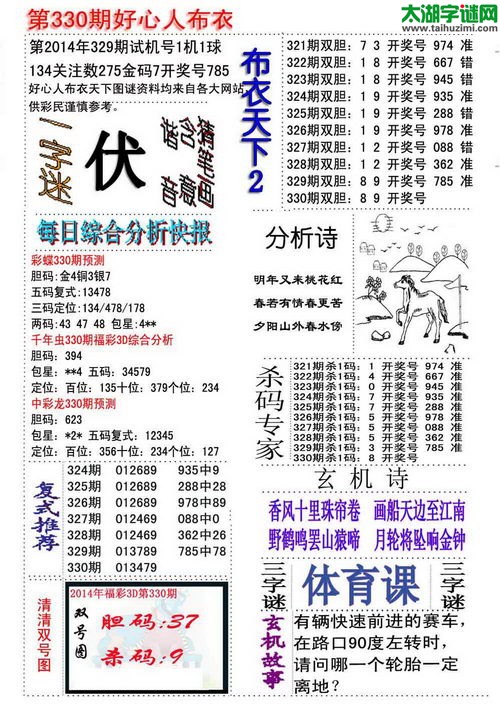 太湖字谜
www.taihuzimi.com
第330期好心人布衣
第2014年329期试机号1机1球
134关注数275金码7开奖号785
好心人布衣天下图谜资料均来自各大网站,
供彩民谨慎参考。
一字迷
伏
猜笔画
含意
猜音
每日综合分析快报
彩蝶330期预测
胆码:金4铜3银7
五码复式:13478
三码定位:134/478/178
两码:43 47 48 包星:4**
千年虫330期福彩3D综合分析
胆码:394
包星:**4 五码:34579
定位:百位:135十位:379个位:234
中彩龙330期预测
胆码:623
包星:*2* 五码复式:12345
定位:百位:356十位:234个位:127
复式推荐
324期 012689 935中9
325期 012689 288中28
326期 012689 978中89
327期 012469 088中0
328期 012469 362中26
329期 013789 785中78
330期 013479
清清双号图
2014年福彩3D第330期
双号图
胆码:37
杀码:9
布衣天下2
321期双胆:7 3 开奖号 974 准
322期双胆:1 8 开奖号 667 错
323期双胆:1 8 开奖号 945 错
324期双胆:1 9 开奖号 935 准
325期双胆:1 9 开奖号 288 错
326期双胆:1 9 开奖号 978 准
327期双胆:1 2 开奖号 088 错
328期双胆:1 2 开奖号 362 准
329期双胆:8 9 开奖号 785 准
330期双胆:8 9 开奖号
分析诗
明年又来桃花红
春若有情春更苦
夕阳山外春水傍
杀码专家
321期杀1码:1 开奖号 974 准
322期杀1码:4 开奖号 667 准
323期杀1码:0 开奖号 945 准
324期杀1码:7 开奖号 935 准
325期杀1码:7 开奖号 288 准
326期杀1码:5 开奖号 978 准
327期杀1码:5 开奖号 088 准
328期杀1码:5 开奖号 362 准
329期杀1码:3 开奖号 785 准
330期杀1码:8 开奖号
玄机诗
香风十里珠帘卷 画船天边至江南
野鹤鸣罢山猿啼 月轮将坠响金钟
三字谜
体育课
三字谜
玄机故事
有辆快速前进的赛车,
在路口90度左转时,
请问哪一个轮胎一定
离地?